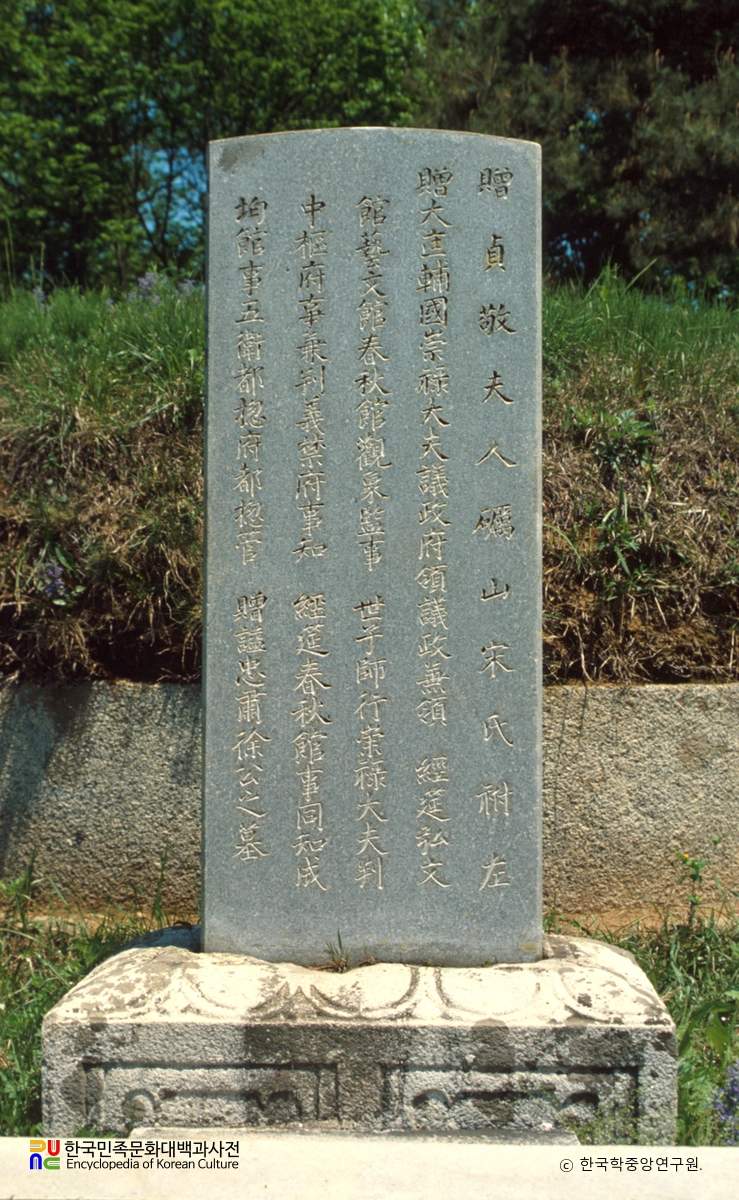 贈貞敬夫人礪山宋氏祔左
贈大匡輔國崇祿大夫議政府領議政兼領 經筵弘文
館藝文館春秋館觀象監事 世子師行崇祿大夫判
中樞府事兼判義禁府事知 經筵春秋館事同知成
均館事五衛都摠府都摠管 贈諡忠肅徐公之墓
한국민족문화대백과사전
Encyclopedia of Korean Culture
ⓒ 한국학중앙연구원.